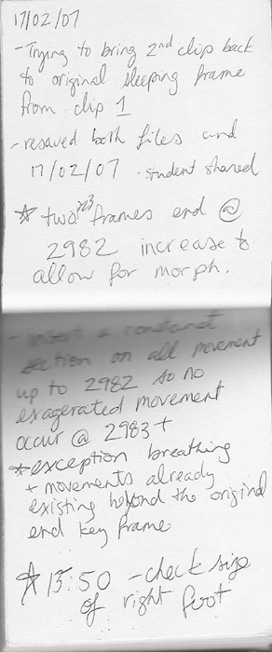 17/02/07
- Trying to bring 2nd clip back
to original sleeping frame
from clip 1
- resaved both files and
17/02/07 . student shared
* two frames end @
2982 increase to
allow for morph.
- insert a constant
section on all movement
up to 2982 so no
exagerated movement
occur @ 2983 +
* exception breathing
+ movements already
existing beyond the original
end key frame
* 13:50 - check size
of right foot